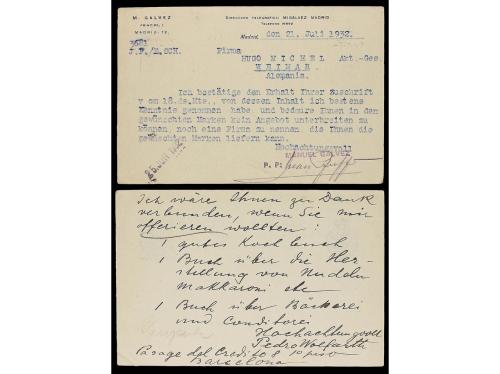 M. GALVEZ
PRINCIPE, 1
MADRID-12.
DIRECCION TELEGRAFICA: MIGALVEZ MADRID
TELEFONO
Madrid, den 21. Juli 1932.
J.P./M.SCH.
Firma
HUGO MICHEL Akt.-Ges.
WEIMAR
Alemania.
Ich bestätige den Erhalt Ihrer Zuschrift
v om 18. ds.Mts., von dessen Inhalt ich bestens
Kenntnis genommen habe, und bedaure Ihnen in den
gewünschten Marken kein Angebot unterbreiten zu
können, noch eine Firma zu nennen, die Ihnen die
gewünschten Marken liefern kann.
Hochachtungsvoll
MANUEL GALVEZ
P. P.
Ich wäre Ihnen zu Dank
verbunden, wenn Sie mir
offerieren wollten:
1 gutes Kochbuch
1 Buch über die Her-
stellung von Nudeln
Makkaroni etc
1 Buch über Bäckerei
und Conditorei
Hochachtungvoll
Pedro Wolfarth
Pasage del Credito 8 1º piso
Barcelona